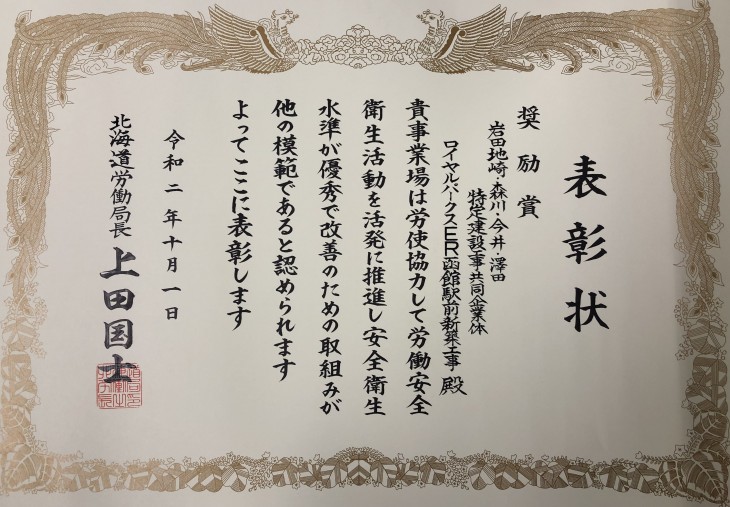 表彰状
奨励賞
岩田地崎・森川・今井・澤田
特定建設工事共同企業体
ロイヤルパークスER函館駅前新築工事 殿
貴事業場は労使協力して労働安全
衛生活動を活発に推進し安全衛生
水準が優秀で改善のための取組みが
他の模範であると認められます
よってここに表彰します
令和二年十月一日
北海道労働局長 上田国士